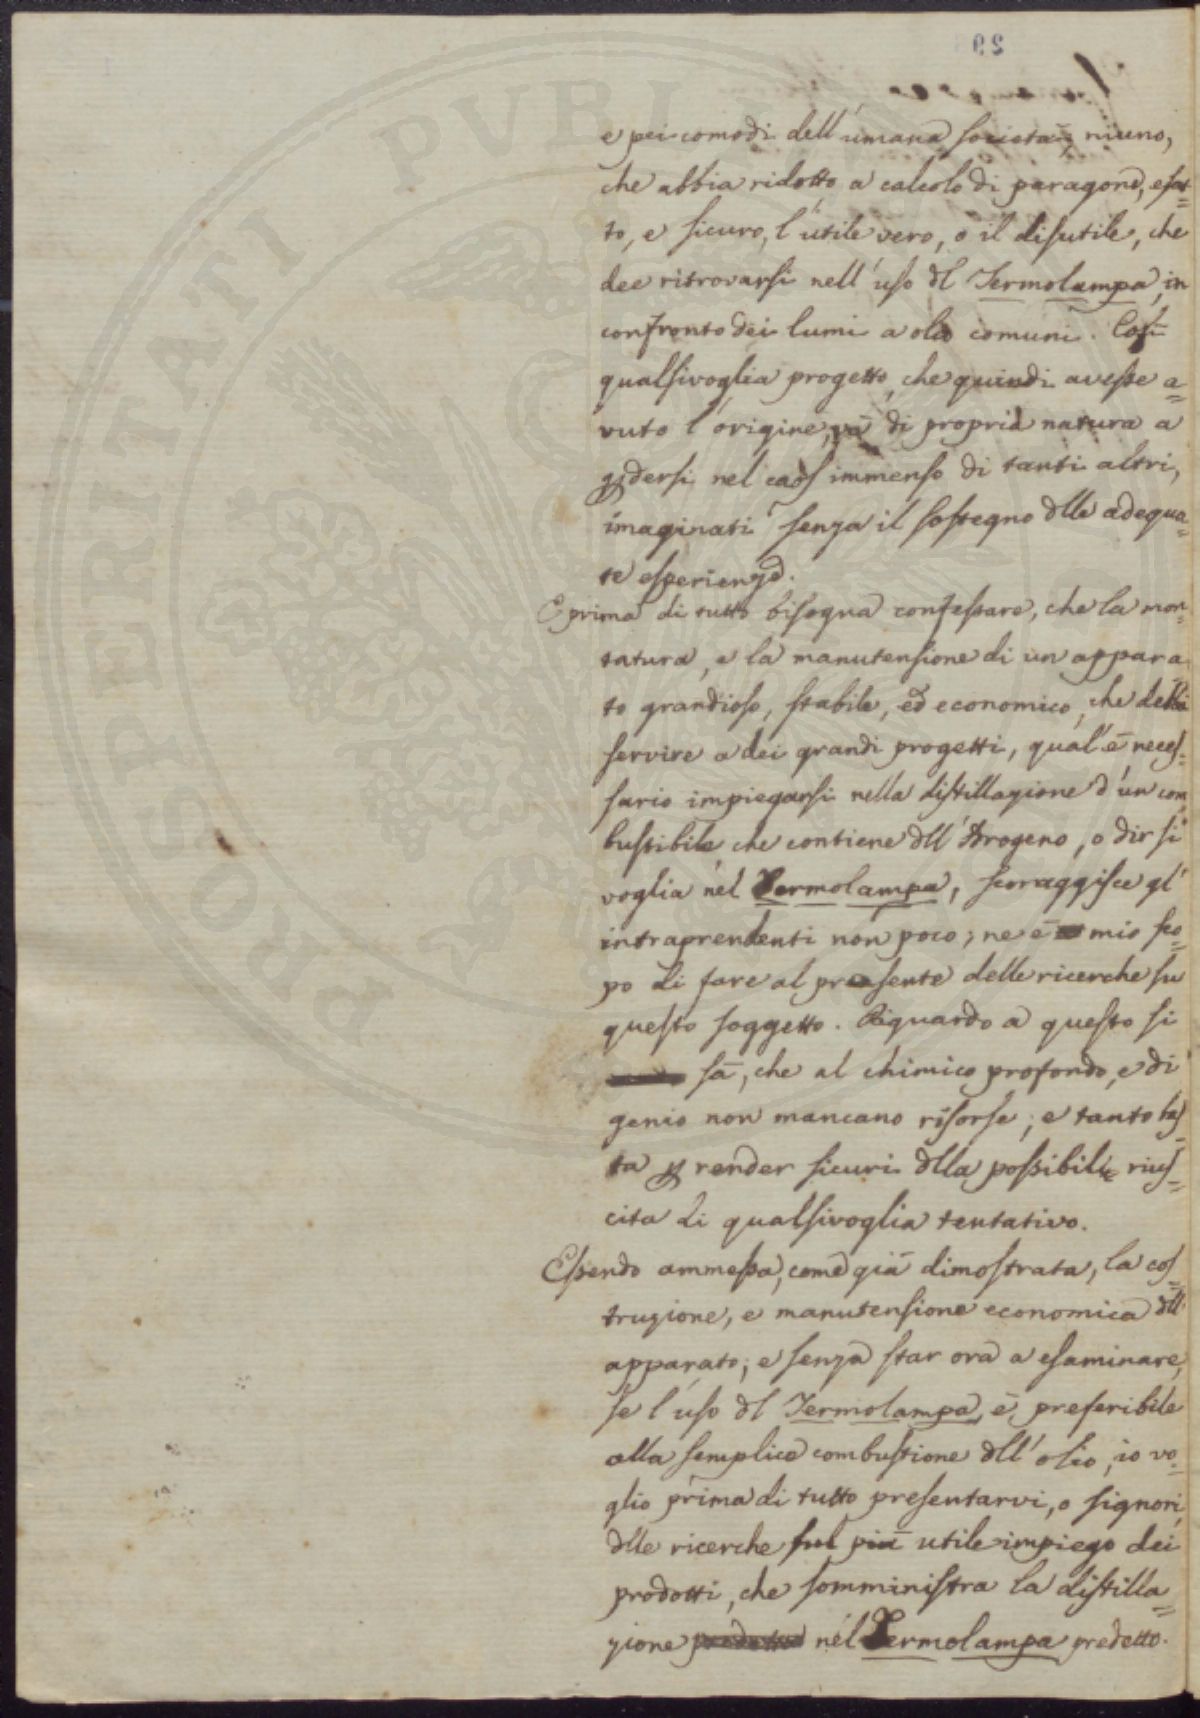 e pei comodi dell'umana societa, niuno,
che abbia ridotto a calcolo di paragone, esat=
to, e sicuro, l'utile vero, o il disutile, che
dee ritrovarsi nell'uso dl Termolampa, in
confronto dei lumi a olio comuni. Così
qualsivoglia progetto, che quindi avesse a=
vuto l'origine, và di propria natura a
pdersi nel caos immenso di tanti altri,
imaginati senza il sostegno dlle adequa=
te esperienze.
E prima di tutto bisogna confessare, che la mon=
tatura, e la manutensione di un appara
to grandioso, stabile, ed economico, che debba
servire a dei grandi progetti, qual'è neces=
sario impiegarsi nella distillazione d'un com
bustibile che contiene dll'Idrogeno, o dir si
voglia nel Termolampa, scoraggisce gl'
intraprendenti non poco; ne è mio sco=
po di fare al presente delle ricerche su
questo soggetto. Riguardo a questo si
sà, che al chimico profondo, e di
genio non mancano risorse; e tanto bas=
ta p render sicuri dlla possibile rius=
cita di qualsivoglia tentativo.
Essendo ammessa, come già dimostrata, la cos=
truzione, e manutensione economica dll'
apparato; e senza star ora a esaminare,
se l'uso dl Termolampa, è preferibile
alla semplice combustione dll'olio, io vo=
glio prima di tutto presentarvi, o signori,
dlle ricerche sul più utile impiego dei
prodotti, che somministra la distilla=
zione nel Termolampa predetto.
PROSPERITATI PVBLI